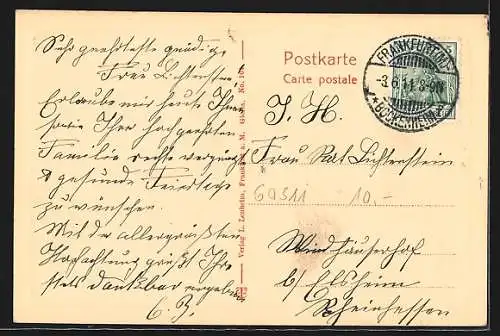 Sehr geehrteste gnädige
Frau Lichtenstein,
Erlaube mir heute Ihnen
sowie Ihrer hochgeehrten
Familie recht vergnügte
& gesunde Feiertage
zu wünschen.
Mit der allergrößten
Hochachtung grüßt Ihre
stets dankbar ergebene
C. B.
Verlag L. Zenheim, Frankfurt a. M.
Postkarte
Carte postale
FRANKFURT(M.)
-3.6.11.8-9N
*BOCKENHEIM
I. H.
Frau Rat Lichtenstein
69311 10.-
Windhäuserhof
b/ Elsheim
Rheinhessen